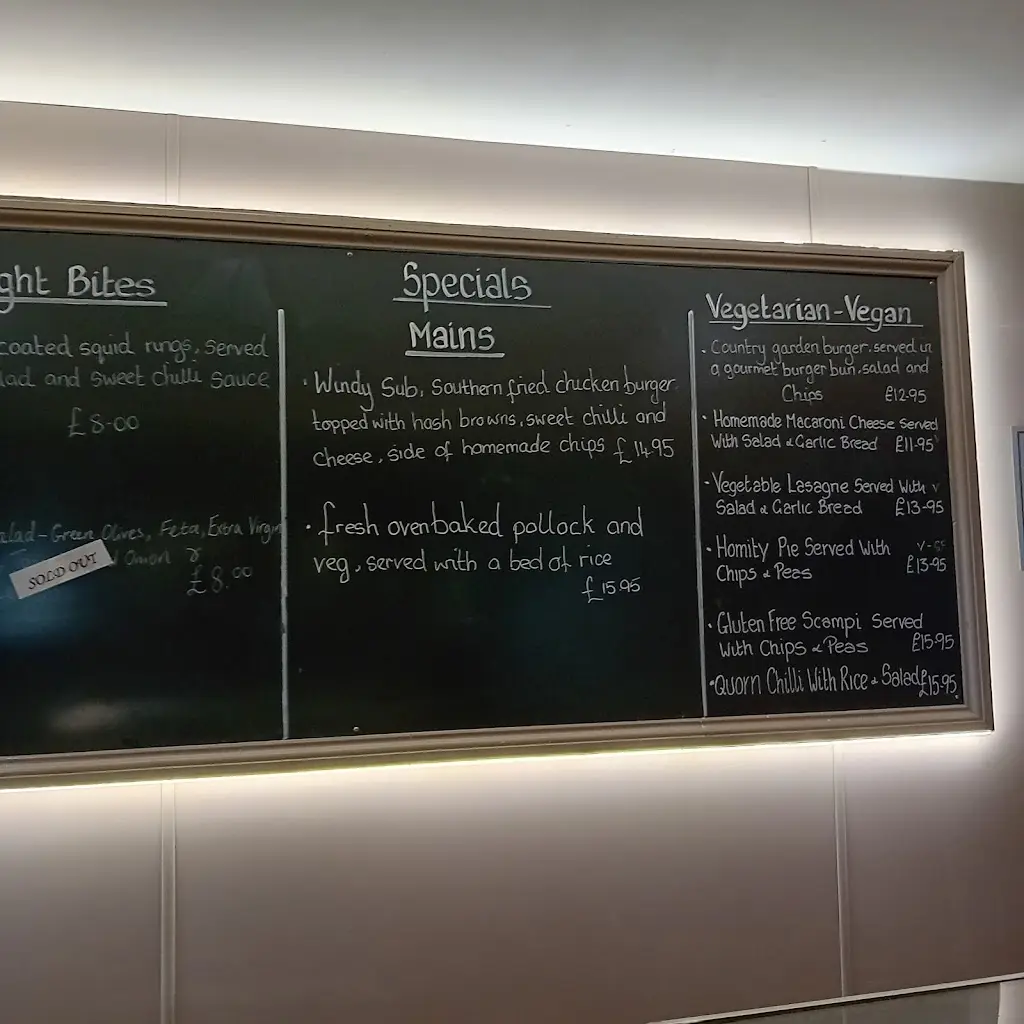 ght Bites
coated squid rings, served
lad and sweet chilli sauce
£8-00
alad - Green Olives, Feta, Extra Virgin
Onion &
SOLD OUT
£8.00
Specials
Mains
· Windy Sub, Southern fried chicken burger
topped with hash browns, sweet chilli and
cheese, side of homemade chips £14.95
· fresh ovenbaked pollock and
veg, served with a bed of rice
£15.95
Vegetarian-Vegan
· Country garden burger, served in
a gourmet burger bun, salad and
Chips £12.95
· Homemade Macaroni Cheese Served
With Salad & Garlic Bread £11-95
· Vegetable Lasagne Served With v
Salad & Garlic Bread £13-95
· Homity Pie Served With
Chips & Peas £13-95
· Gluten Free Scampi Served
With Chips & Peas £15-95
· Quorn Chilli With Rice & Salad £15-95